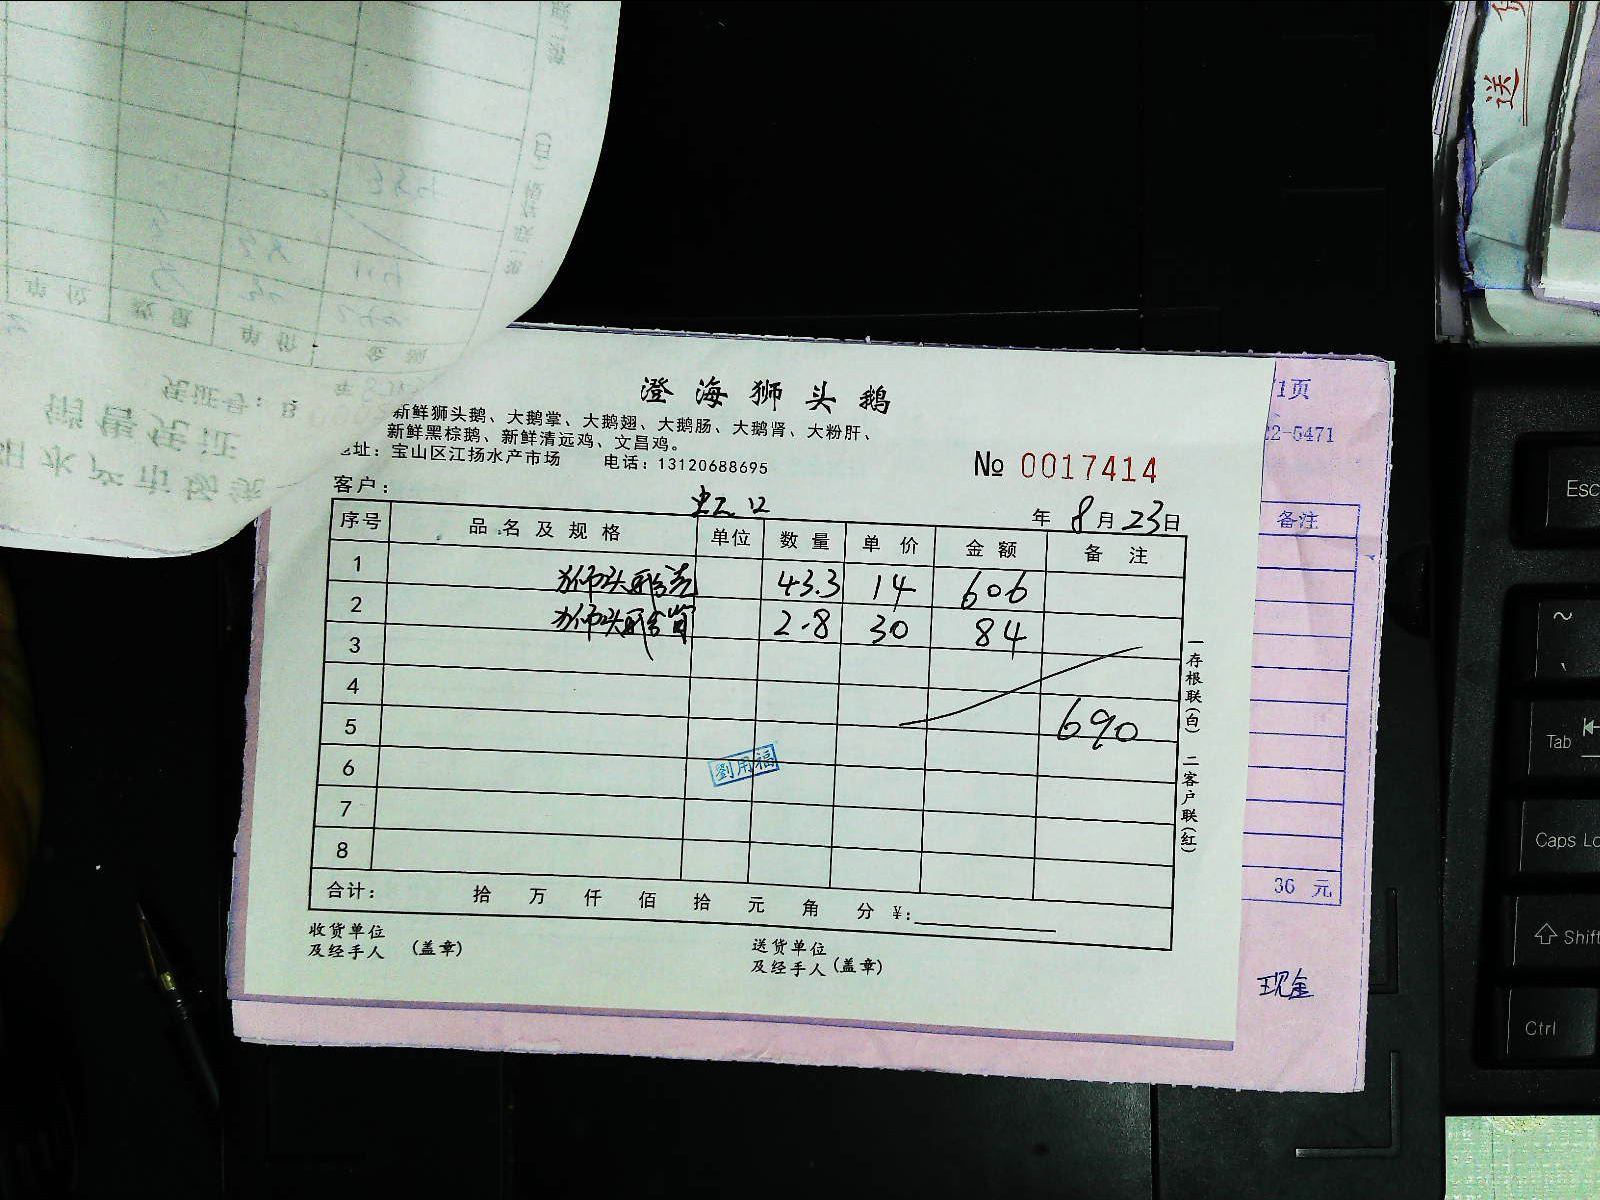 澄海狮头鹅
新鲜狮头鹅、大鹅掌、大鹅翅、大鹅肠、大鹅肾、大粉肝、
新鲜黑棕鹅、新鲜清远鸡、文昌鸡。
址：宝山区江扬水产市场 电话：13120688695
№ 0017414
客户： 虹口 年 8月23日
序号 品名及规格 单位 数量 单价 金额 备注
1 狮头鹅 43.3 14 606
2 狮头鹅肾 2.8 30 84
3
4
5 690
6
7
8
劉用福
合计： 拾 万 仟 佰 拾 元 角 分 ¥：
收货单位
及经手人 （盖章）
送货单位
及经手人（盖章）
一存根联（白） 二客户联（红）
/1页
2-5471
备注
36 元
现金
送
销售凭证
凭证号：
数量 单价 金额
Esc
~
Tab
Caps Lo
Shift
Ctrl